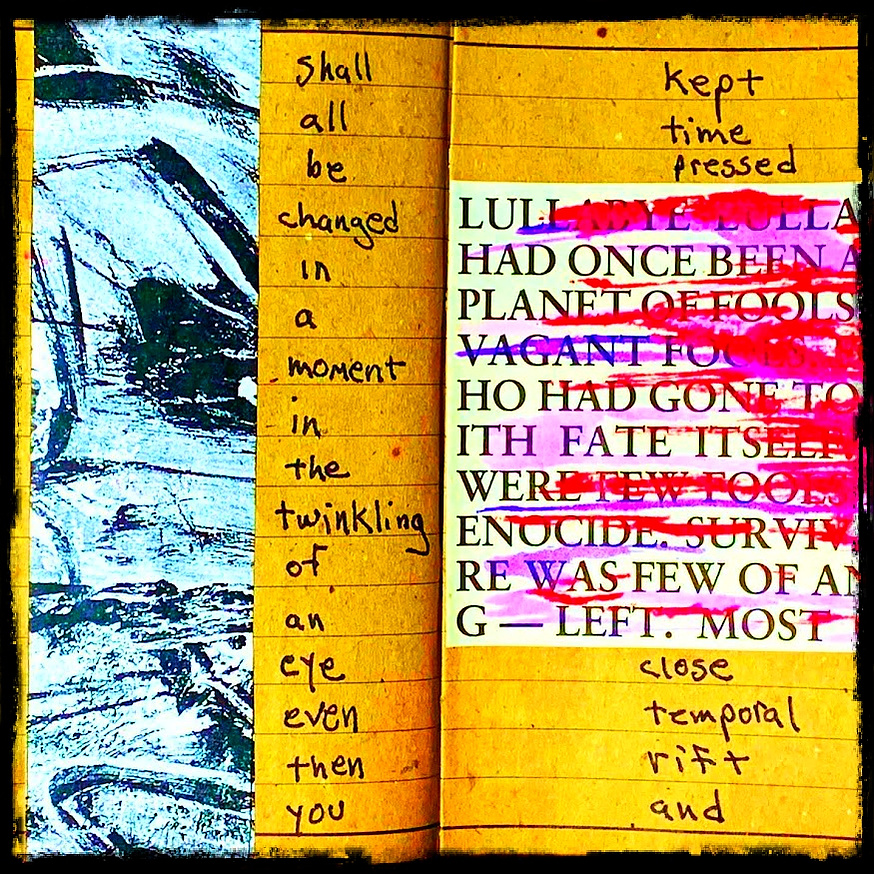 shall
all
be
changed
in
a
moment
in
the
twinkling
of
an
eye
even
then
you
kept
time
pressed
LULLABYE LULLA
HAD ONCE BEEN A
PLANET OF FOOLS
VAGANT FOOLS
HO HAD GONE TO
ITH FATE ITSELF
WERE FEW FOOLS
ENOCIDE. SURVIV
RE WAS FEW OF AN
G — LEFT. MOST
close
temporal
rift
and